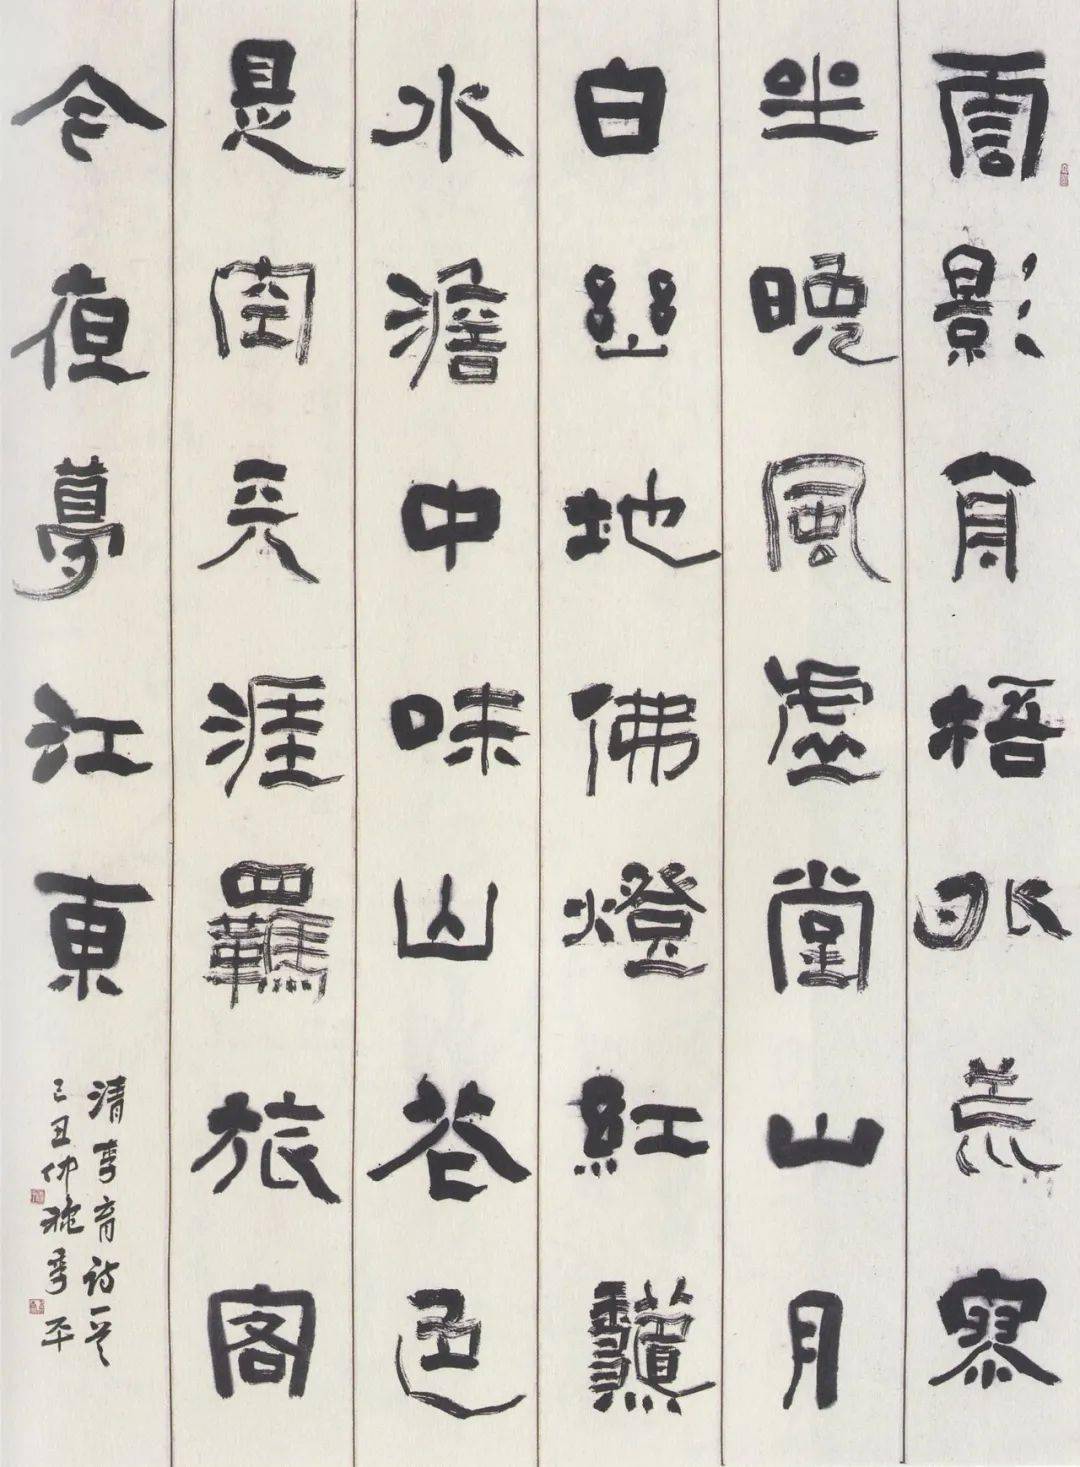 雲影梧荒寮
坐晚風虛堂山月
白幽地佛燈紅
水澹中味山苍色
是空天涯羈旅客
今夜夢江東
清李育诗一首
己丑仲秋李平